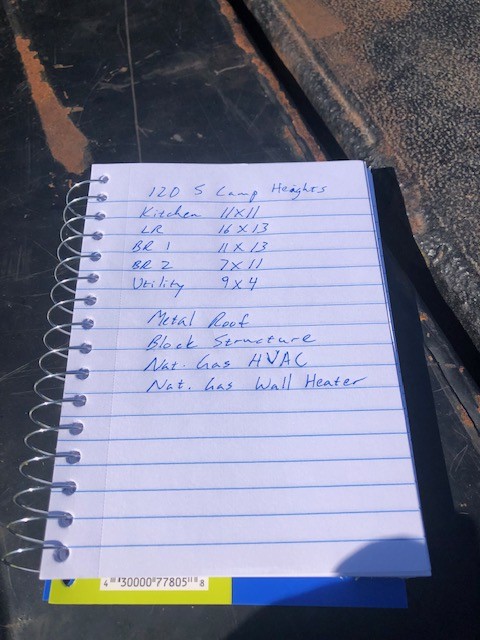 120 S Camp Heights
Kitchen 11X11
LR 16 X 13
BR 1 11 X 13
BR 2 7 X 11
Utility 9 X 4
Metal Roof
Block Structure
Nat. Gas HVAC
Nat. Gas Wall Heater
4 30000 77805 8